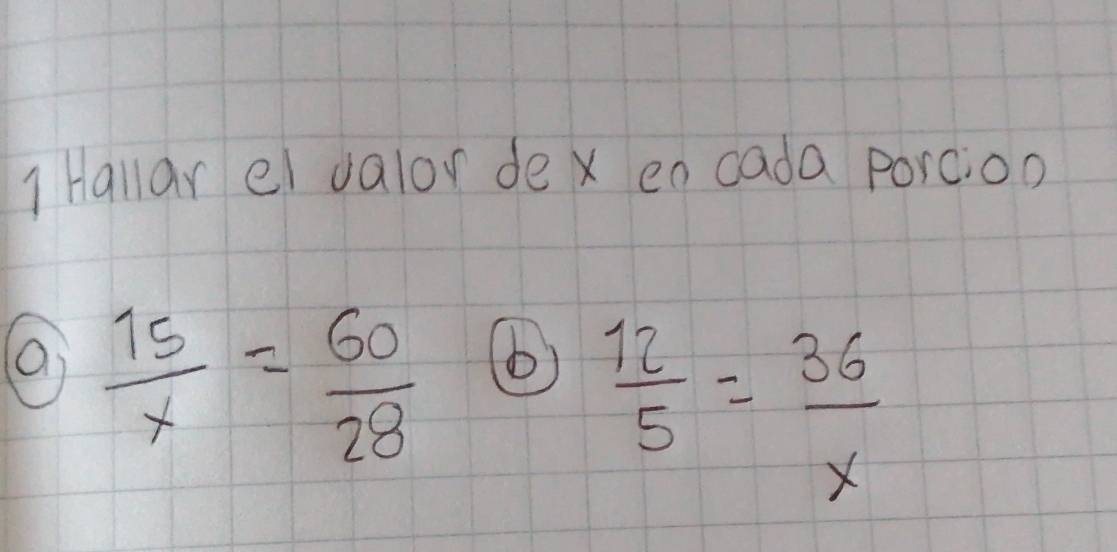 1 Hallar el valor de x en cada porcion
a) 15/x = 60/28 b) 12/5 = 36/x